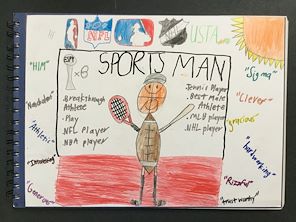 NFL
USTA
SPORTS MAN
"HIM"
ESPY
x6
.Breakthrough
Athlete
.Play
NFL Player
NBA player
Tennis Player
.Best Male
Athlete
.MLB player
.NHL player
"Athletic"
"Generous"
"Sigma"
"Clever"
"gracious"
"hardworking"
"Rizzful"
"trust worthy"